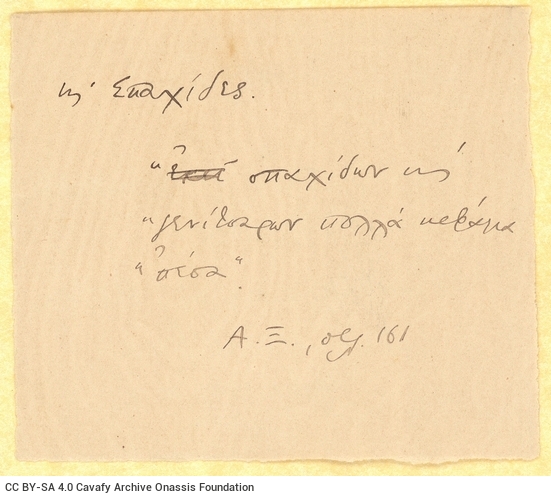 κι' Σπαχίδες.
"σπαχίδων κι'
"γενίτσαρων πολλά κεφάλια
"πέσα".
Α.Ξ., σελ. 161
CC BY-SA 4.0 Cavafy Archive Onassis Foundation